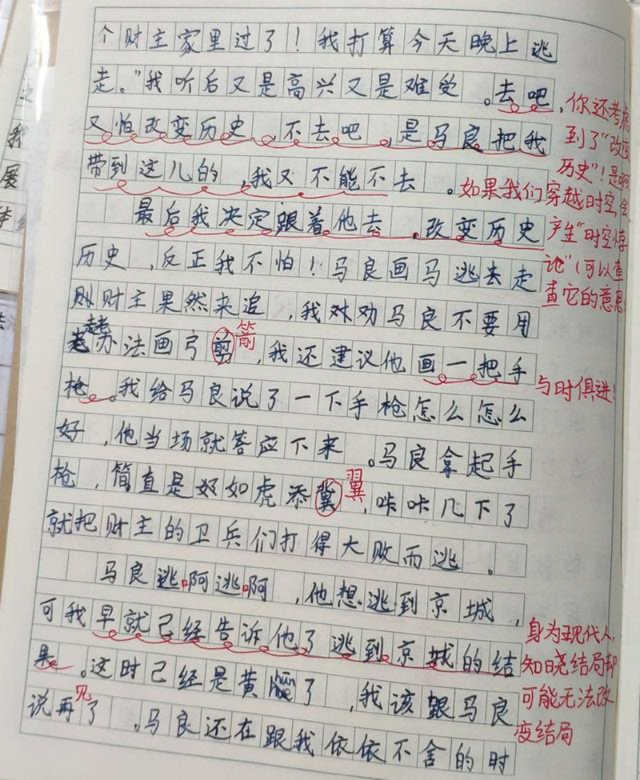 个财主家里过了！我打算今天晚上逃
走。"我听后又是高兴又是难受。去吧，
又怕改变历史，不去吧，是马良把我
带到这儿的，我又不能不去。
最后我决定跟着他去，改变历史
历史，反正我不怕！马良画马逃去走
则财主果然来追，我劝马良不要用
老办法画弓剪，我还建议他画一把手
枪。我给马良说了一下手枪怎么怎么
好，他当场就答应下来。马良拿起手
枪，简直是好如虎添冀，咔咔几下了
就把财主的卫兵们打得大败而逃。
马良逃啊逃啊，他想逃到京城，
可我早就已经告诉他了逃到京城的结
果。这时已经是黄了，我该跟马良
说再了。马良还在跟我依依不舍的时
你还考虑
到了"改变
历史"！是啊
如果我们穿越时空，会
产生"时空悖
论"（可以查
查它的意思
箭
与时俱进！
翼
身为现代人，
知晓结局却
可能无法改
变结局
见